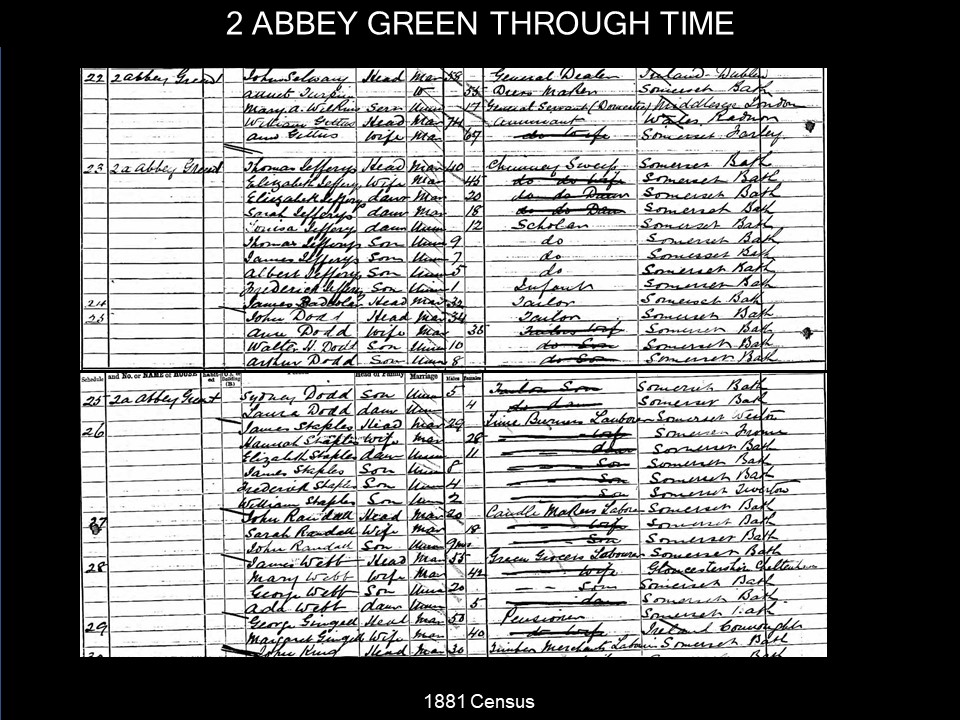 2 ABBEY GREEN THROUGH TIME
22 2 Abbey Green John Selway Head Mar 58 General Dealer Ireland Dublin
W 55 Dress Maker Somerset Bath
Mary A. Wilkins Serv Unm 17 General Servant (Domestic) Middlesex London
William Gettus Head Mar 74 Annuitant Wales Radnor
Ann Gettus Wife Mar 67 do Wife Somerset Farley
23 2a Abbey Green Thomas Jefferys Head Mar 40 Chimney Sweep Somerset Bath
Elizabeth Jefferys Wife Mar 45 do do Wife Somerset Bath
Elizabeth Jefferys daur Mar 20 do do Daur Somerset Bath
Sarah Jefferys daur Mar 18 do do Dau Somerset Bath
Louisa Jefferys daur Unm 12 Scholar Somerset Bath
Thomas Jefferys Son Unm 9 do Somerset Bath
James Jefferys Son Unm 7 do Somerset Bath
Albert Jefferys Son Unm 5 do Somerset Bath
Frederick Jefferys Son Unm 1 Infant Somerset Bath
24 James Head Mar 32 Tailor Somerset Bath
25 John Dodd Head Mar 34 Tailor Somerset Bath
Ann Dodd Wife Mar 35 Tailors Wife Somerset Bath
Walter H. Dodd Son Unm 10 do Son Somerset Bath
Arthur Dodd Son Unm 8 do Son Somerset Bath
Schedule and No. or NAME of HOUSE Head of Family Marriage Males Females
25 2a Abbey Green Sydney Dodd Son Unm 5 Tailor Son Somerset Bath
Laura Dodd daur Unm 4 do dau Somerset Bath
26 James Staples Head Mar 29 Lime Burners Labourer Somerset Weston
Hannah Staples Wife Mar 28 Wife Somerset Frome
Elizabeth Staples daur Unm 11 daur Somerset Bath
James Staples Son Unm 8 Son Somerset Bath
Frederick Staples Son Unm 4 Son Somerset Bath
William Staples Son Unm 2 Son Somerset Twerton
27 John Randall Head Mar 20 Candle Makers Labourer Somerset Bath
Sarah Randall Wife Mar 18 Wife Somerset Bath
John Randall Son Unm 9ms Son Somerset Bath
28 James Webb Head Mar 55 Green Grocers Labourer Somerset Bath
Mary Webb Wife Mar 42 Wife Gloucestershire Cheltenham
George Webb Son Unm 20 Son Somerset Bath
Ada Webb daur Unm 5 daur Somerset Bath
29 George Gingell Head Mar 50 Pensioner Somerset Bath
Margaret Gingell Wife Mar 40 do Wife Ireland Connaught
John King Head Mar 30 Timber Merchants Labourer Somerset Bath
1881 Census